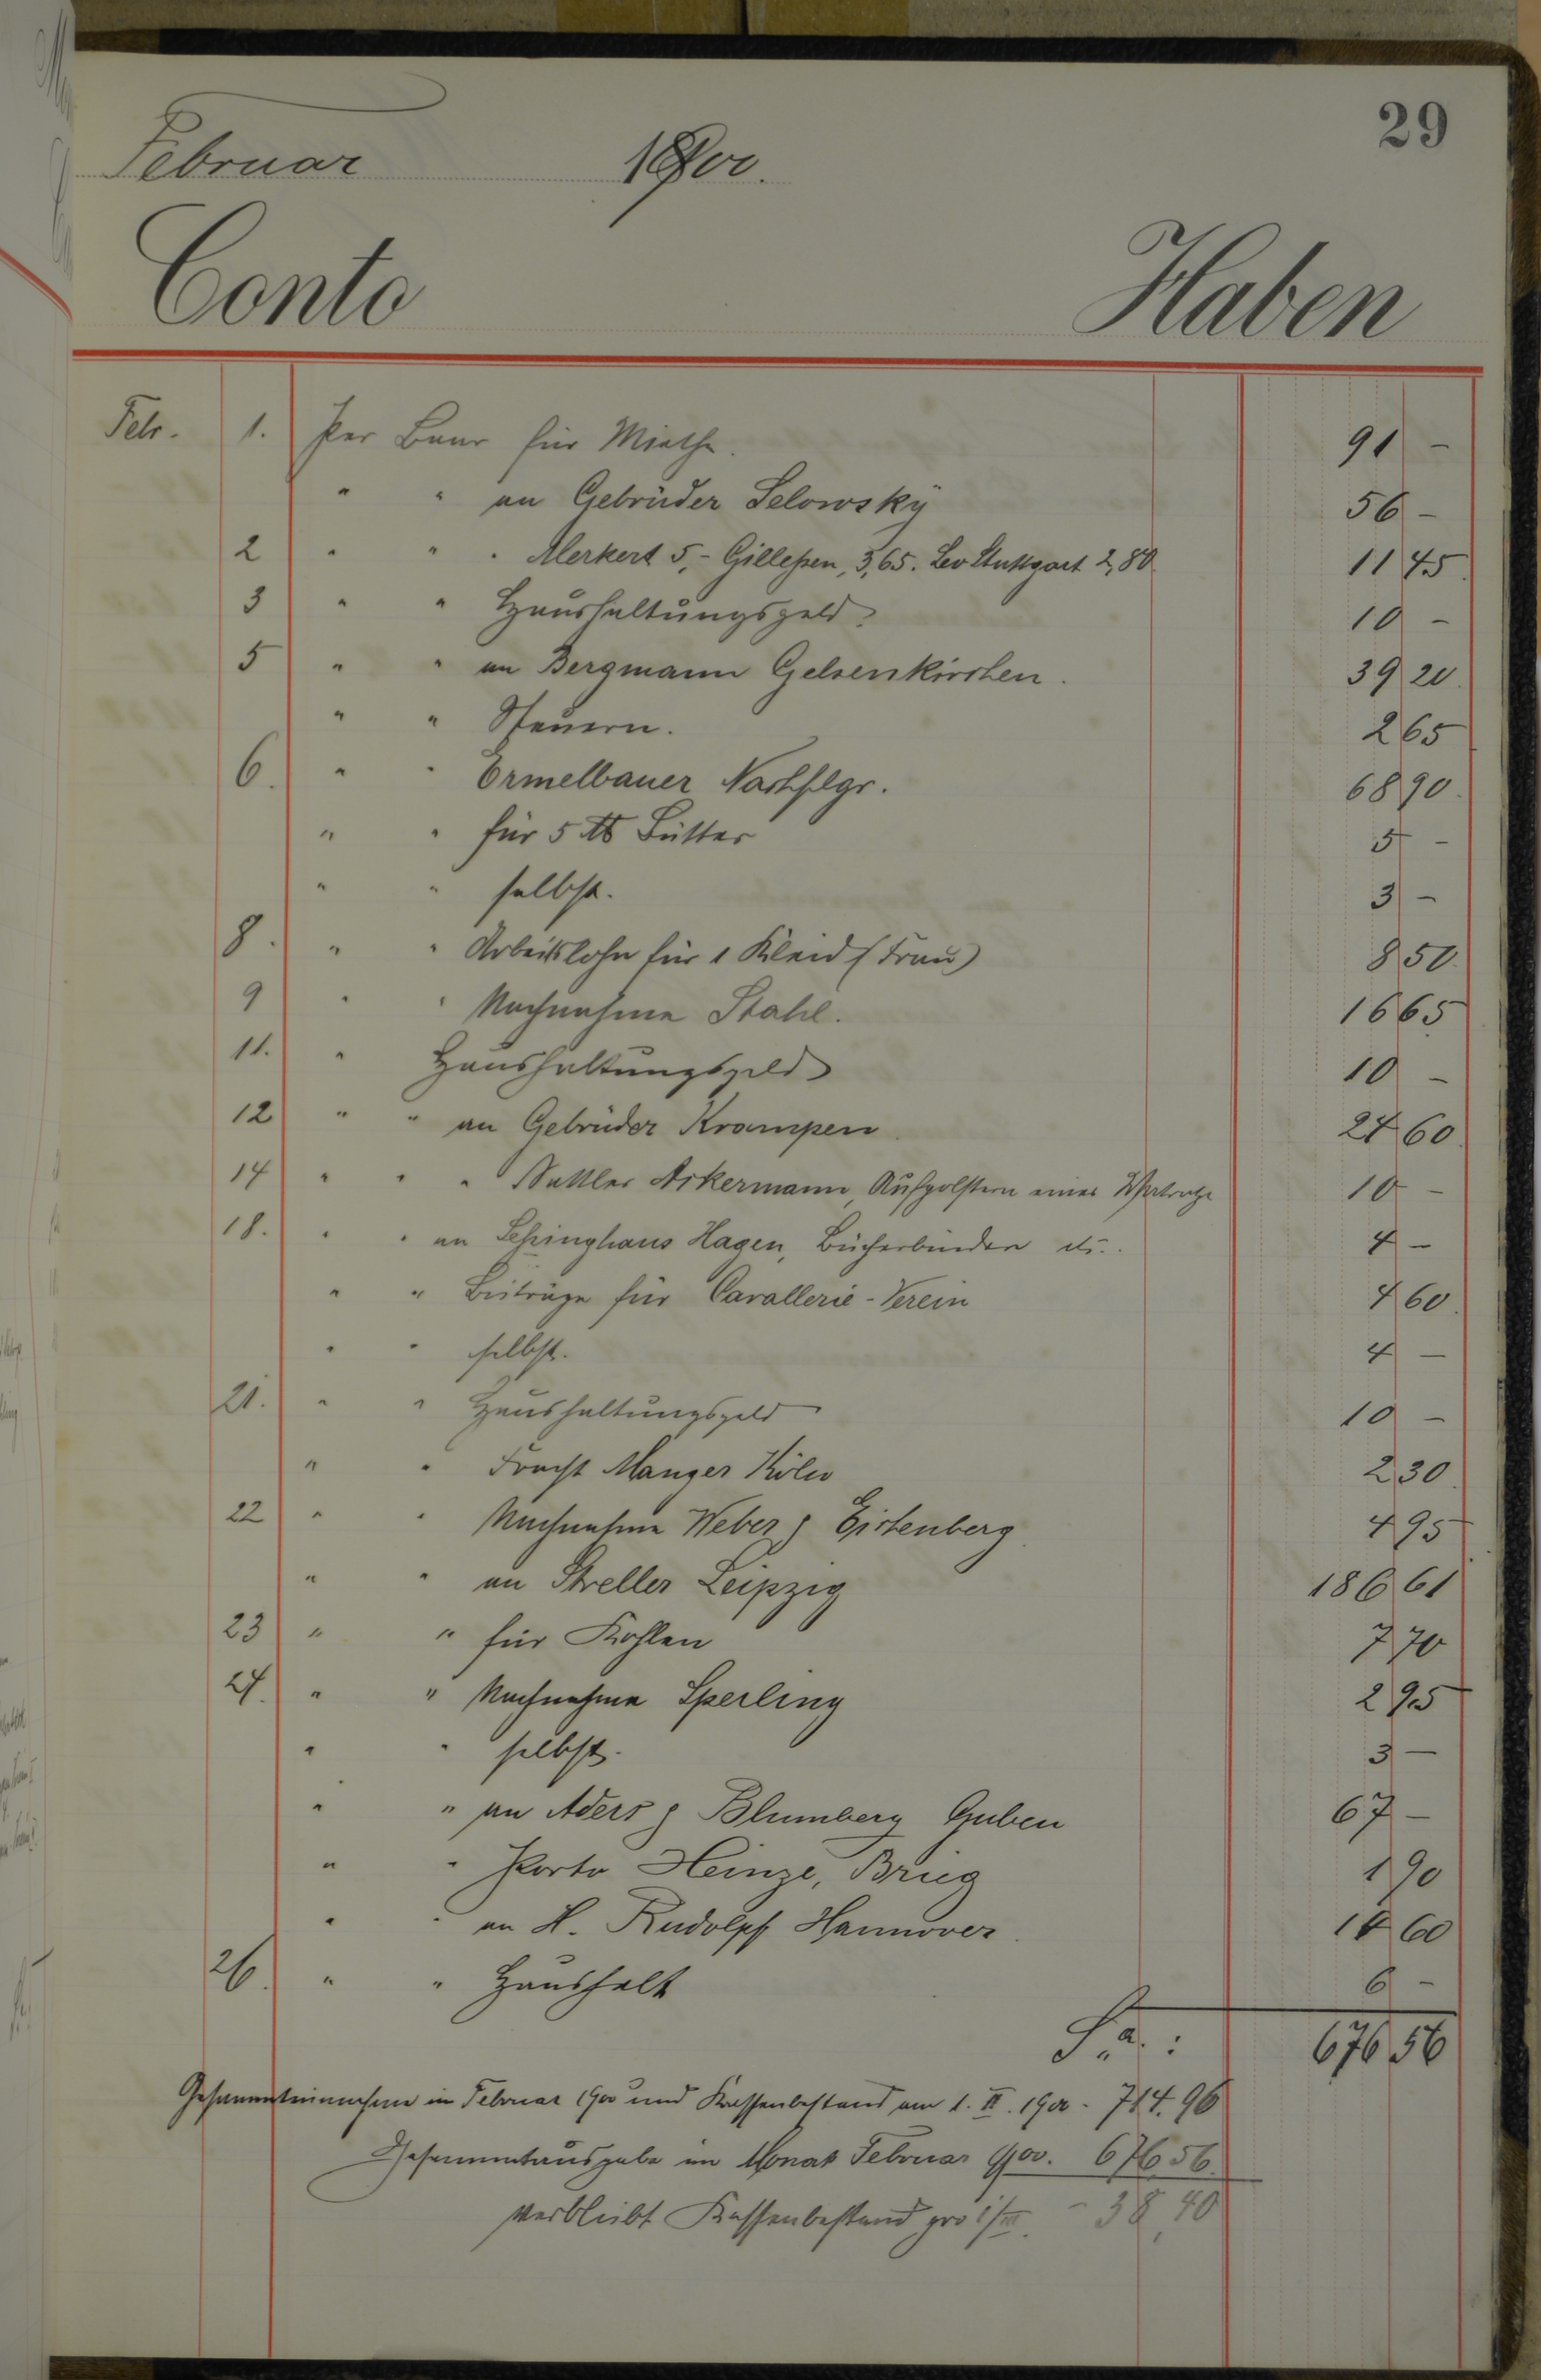 29
Februar 1900.
Conto Haben
Febr. 1. Per Baar für Miethe. 91 -
" " an Gebrüder Selowsky 56 -
2 " " " Merkert 5,- Gilleßen, 3,65. Leo Stuttgart 2,80 11 45
3 " " Haushaltungsgeld. 10 -
5 " " an Bergmann Gelsenkirchen. 39 20
" " Steuern. 2 65
6. " " Ormelbauer Nachfolgr. 68 90
" " für 5 ℔ Butter 5 -
" " selbst. 3 -
8. " " Arbeitslohn für 1 Kleid (Frau) 8 50
9 " " Nachnahme Stahl. 16 65
11. " Haushaltungsgeld 10 -
12 " " an Gebrüder Krampen 24 60
14 " " " Sattler Ackermann, Aufpolstern einer Matratze 10 -
18. " " an Schinghaus Hagen, Bücherbinden 4 -
" " Beiträge für Cavallerie-Verein 4 60
" " selbst. 4 -
21. " " Haushaltungsgeld 10 -
" " Fracht Manger Köln 2 30
22 " " Nachnahme Weber & Eistenberg 4 95
" " an Streller Leipzig 186 61
23 " " für Kohlen 7 70
24. " " Nachnahme Sperling 2 95
" " selbst. 3 -
" " an Aders & Blumberg Guben 67 -
" " Porto Heinze, Brieg 1 90
" " an H. Rudolph Hannover 14 60
26. " " Haushalt 6 -
Sa. : 676 56
Gesammteinnahme im Februar 1900 und Kassenbestand am 1. II. 1900 - 714.96
Gesammtausgabe im Monat Februar 1900. 676 56
verbleibt Kassenbestand pro 1/III. - 38,40